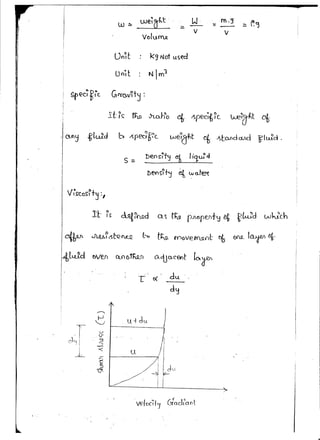 ω = weight / Volume = W / V = m.g / V = ρg
Unit : Kg Not used
Unit : N/m³
Specific Gravity :
It is the ratio of specific weight of
any fluid to specific weight of standard fluid.
S = Density of liquid / Density of water
Viscosity :,
It is defined as the property of fluid which
offers resistance to the movement of one layer of
fluid over another adjacent layer
τ ∝ du / dy
u + du
u
du
Shear stress (τ)
Velocity Gradient